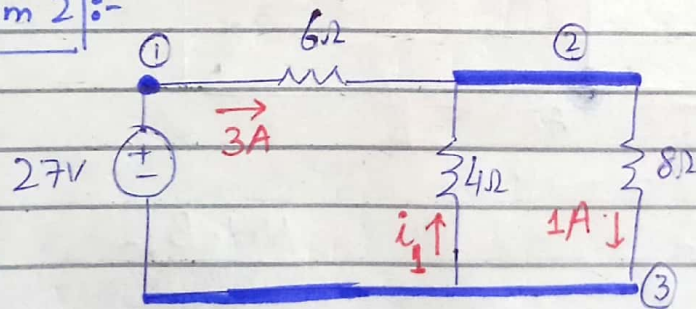 m 2:-
① 6Ω ②
3A
27V + - 4Ω 8Ω
i₁ ↑ 1A ↓
③